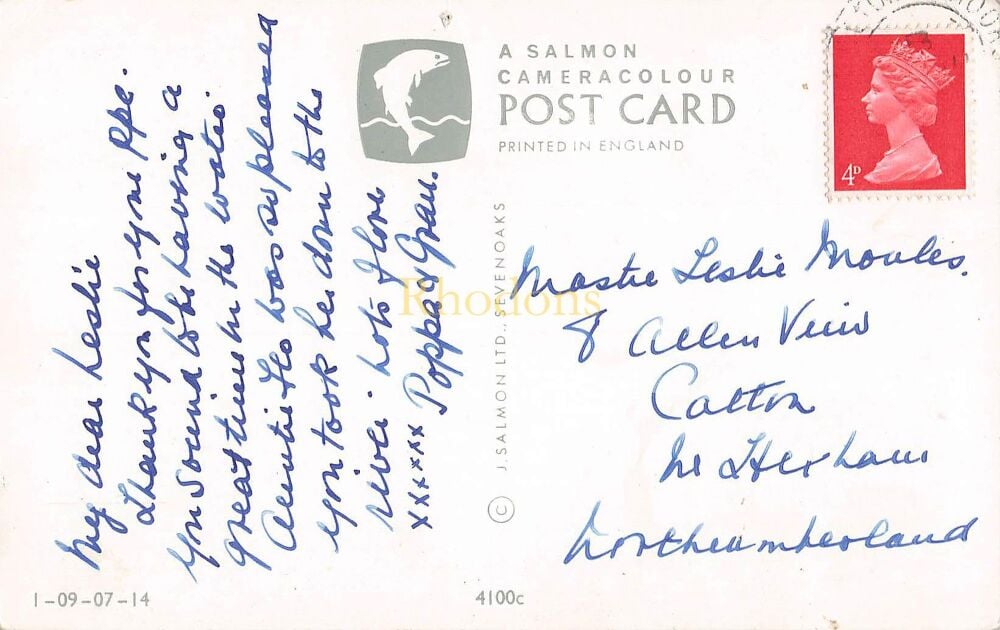 My dear Leslie
Thank you for your Ppc.
you sound to be having a
great time in the water.
Auntie Flo was so pleased
you took her down to the
river. lots of love
xxxxxx Poppa & Gran.
A SALMON
CAMERACOLOUR
POST CARD
PRINTED IN ENGLAND
4D
J. SALMON LTD., SEVENOAKS ©
Rhodons
Master Leslie Moules.
8 Allen View
Catton
Nr Hexham
Northumberland
1-09-07-14
4100c